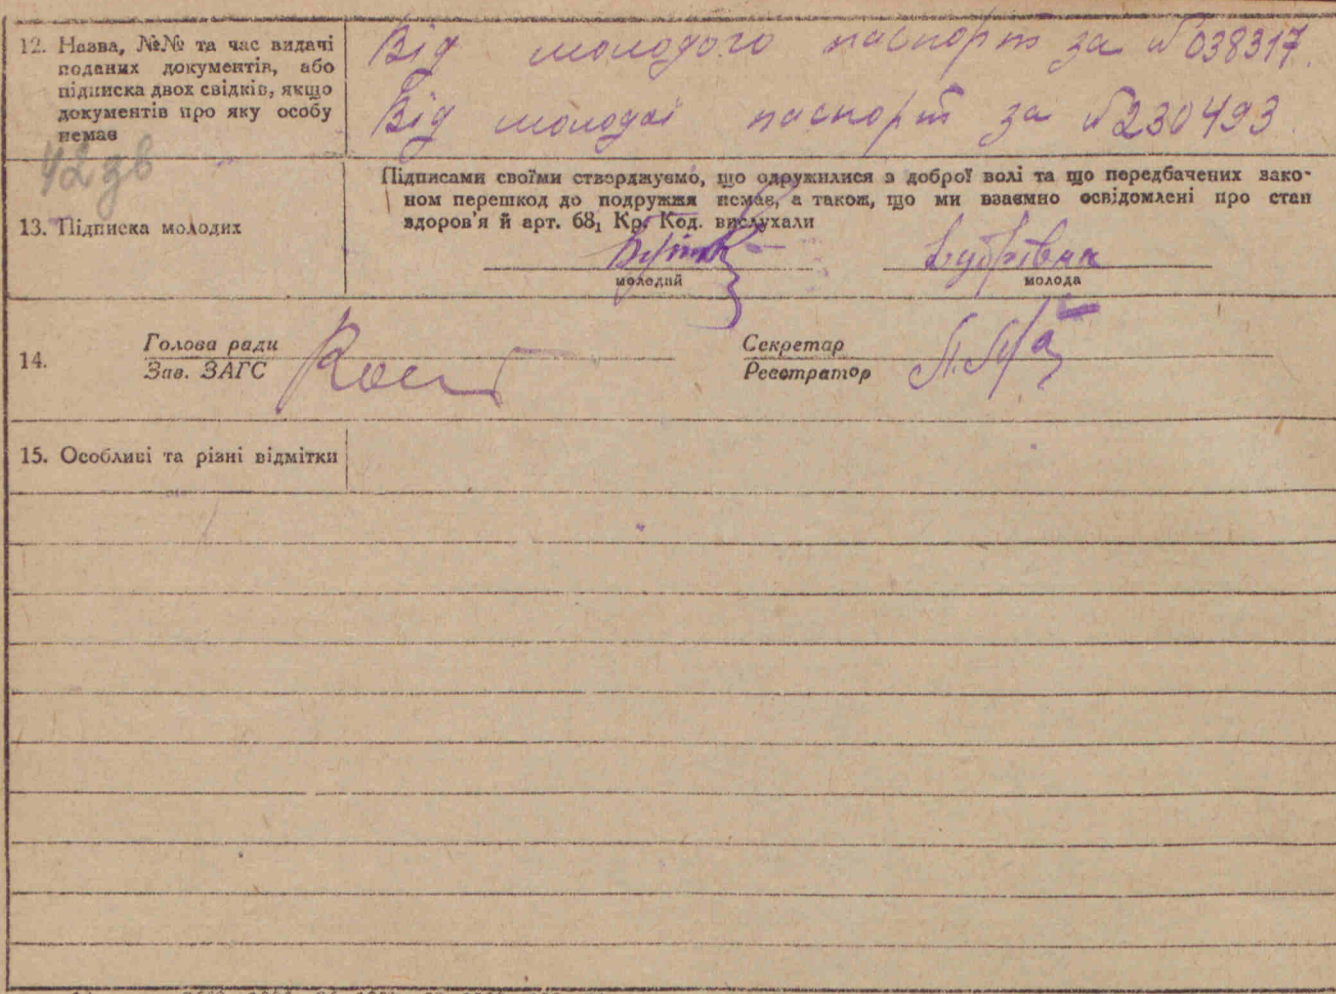 12. Назва, №№ та час видачі
поданих документів, або
підписка двох свідків, якщо
документів про яку особу
немає
Від молодого паспорт за №038317.
Від молодої паспорт за №230493.
42 зв
13. Підписка молодих
Підписами своїми стверджуємо, що одружилися з доброї волі та що передбачених зако-
ном перешкод до подружжя немає, а також, що ми взаємно освідомлені про стан
здоров'я й арт. 68₁ Кр. Код. вислухали
молодий
молода
14.
Голова ради
Зав. ЗАГС
Секретар
Реєстратор
15. Особливі та різні відмітки